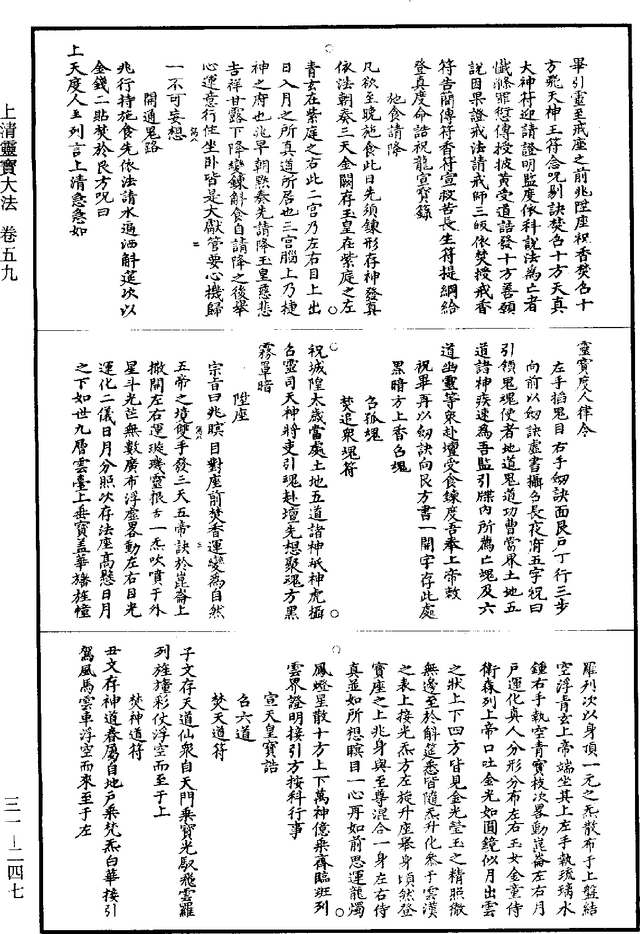 上清靈寶大法 卷五九
畢引靈至戒座之前兆陞座祝香焚召十
方飛天神王符念呪剔訣焚召十方天真
大神符迎請證明監度依科說法為亡者
懺滌罪愆傳授披黄受道諸發十方善願
說因果證戒法請戒師三皈依焚授戒香
符告簡傳符香符宣赦苦長生符提綱給
登真度命誥祝龍宣寶籙
施食請降
凡欲至晚施食此日先須鍊形存神發真
依法朝奏三天金闕存玉皇在紫庭之左
青玄在紫庭之右此二宫乃左右目上出
日入月之所真道所居也三宫腦上乃㨗
神之府也兆早朝黙奏先請降玉皇慈悲
吉祥甘露下降變鍊斛食自請降之後舉
心運意行住坐卧皆是大獻管要心機歸
一不可妄想
開通鬼路
兆行持施食先依法請水遍洒斛筵次以
金錢二貼焚於艮方呪曰
上天度人主列言上清急急如
靈寶度人律令
左手搯鬼目右手劒訣面艮户丁行三步
向前以劒訣虚書攝召長夜府五字祝曰
引領鬼魂使者地道鬼道功曹當界土地五
道諸神疾速為吾監引牒內所薦亡魂及六
道幽靈等衆赴壇受食鍊度吾奉上帝敕
祝畢再以劒訣向艮方書一開字存此處
黑暗方上香召魂
召孤魂
焚追衆魂符
祝城隍太歲當處土地五道諸神祇神虎攝
召靈司天神將吏引魂赴壇先想聚魂方黑
霧罩暗
陞座
宗旨曰兆瞑目對座前焚香運變為自然
五帝之境雙手發三天五帝訣於崑崙上
撒開左右運璇璣靈根舌一炁吹賞于外
星斗光芒無數廣布浮虚畧動左右目光
運化二儀日月分照次存法座高懸日月
之下如世九層雲臺上垂寶蓋華旛旌幢
羅列次以身頂一元之炁散布于上盤結
空浮青玄上帝端坐其上左手執琉璃水
鍾右手執空青寶枝次畧動崑崙左右月
户運化真人分形分布左右玉女金童侍
衛森列上帝口吐金光如圓鏡似月出雲
之狀上下四方皆見金光瑩玉之精照徹
無邊至於斛筵悉皆隨炁升化叅于雲漢
之表上接光炁方左旋升座舉身頃然登
寶座之上兆身與至尊混合一身左右侍
真並如所想瞑目一心再如前思運龍燭
鳳燈星散十方上下萬神億乘齊臨班列
雲界證明接引方按科行事
宣天皇寶誥
召六道
焚天道符
子文存天道仙衆自天門乘寶光馭飛雲羅
列旌幢彩仗浮空而至于上
焚神道符
丑文存神道眷屬自地户乘梵炁白華接引
駕風馬雲車浮空而來至于左
三一—二四七